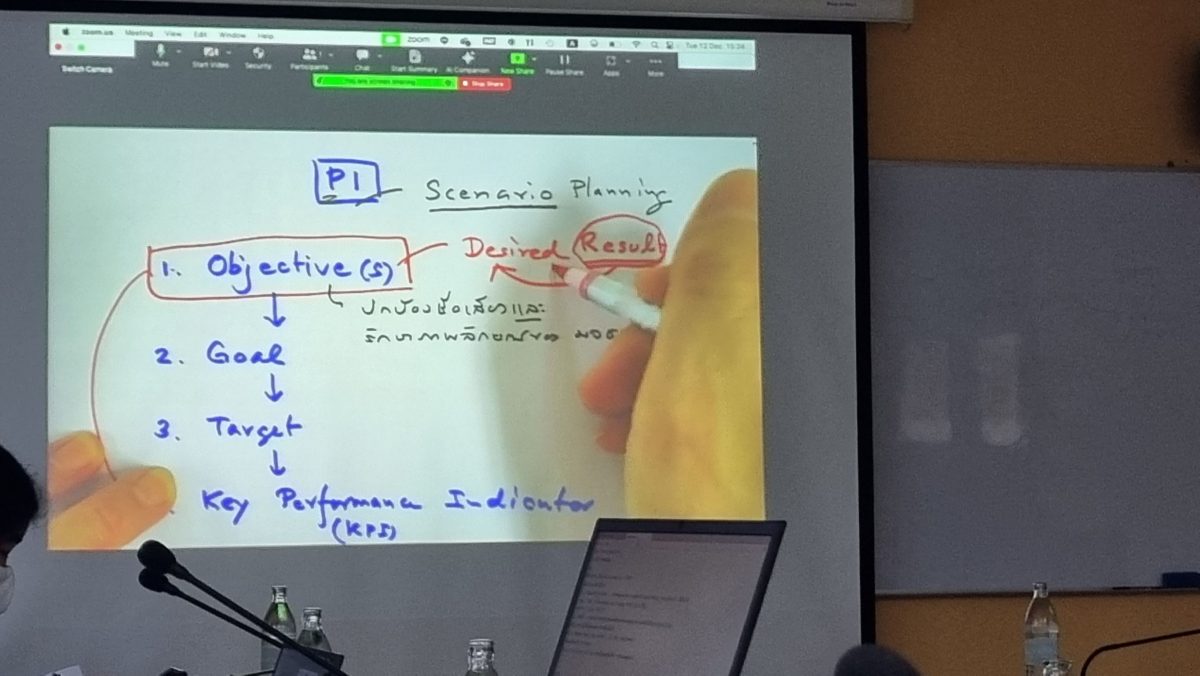 zoom.us Meeting View Edit Window Help zoom Tue 12 Dec 15:24
Switch Camera
Mute Start Video Security Participants Chat Start Summary AI Companion New Share Pause Share Apps More
You are screen sharing Stop Share
P1 Scenario Planning
1. Objective(s) Desired Result
ปกป้องชื่อเสียงและ
รักษาภาพลักษณ์ของ
2. Goal
3. Target
Key Performance Indicator
(KPI)